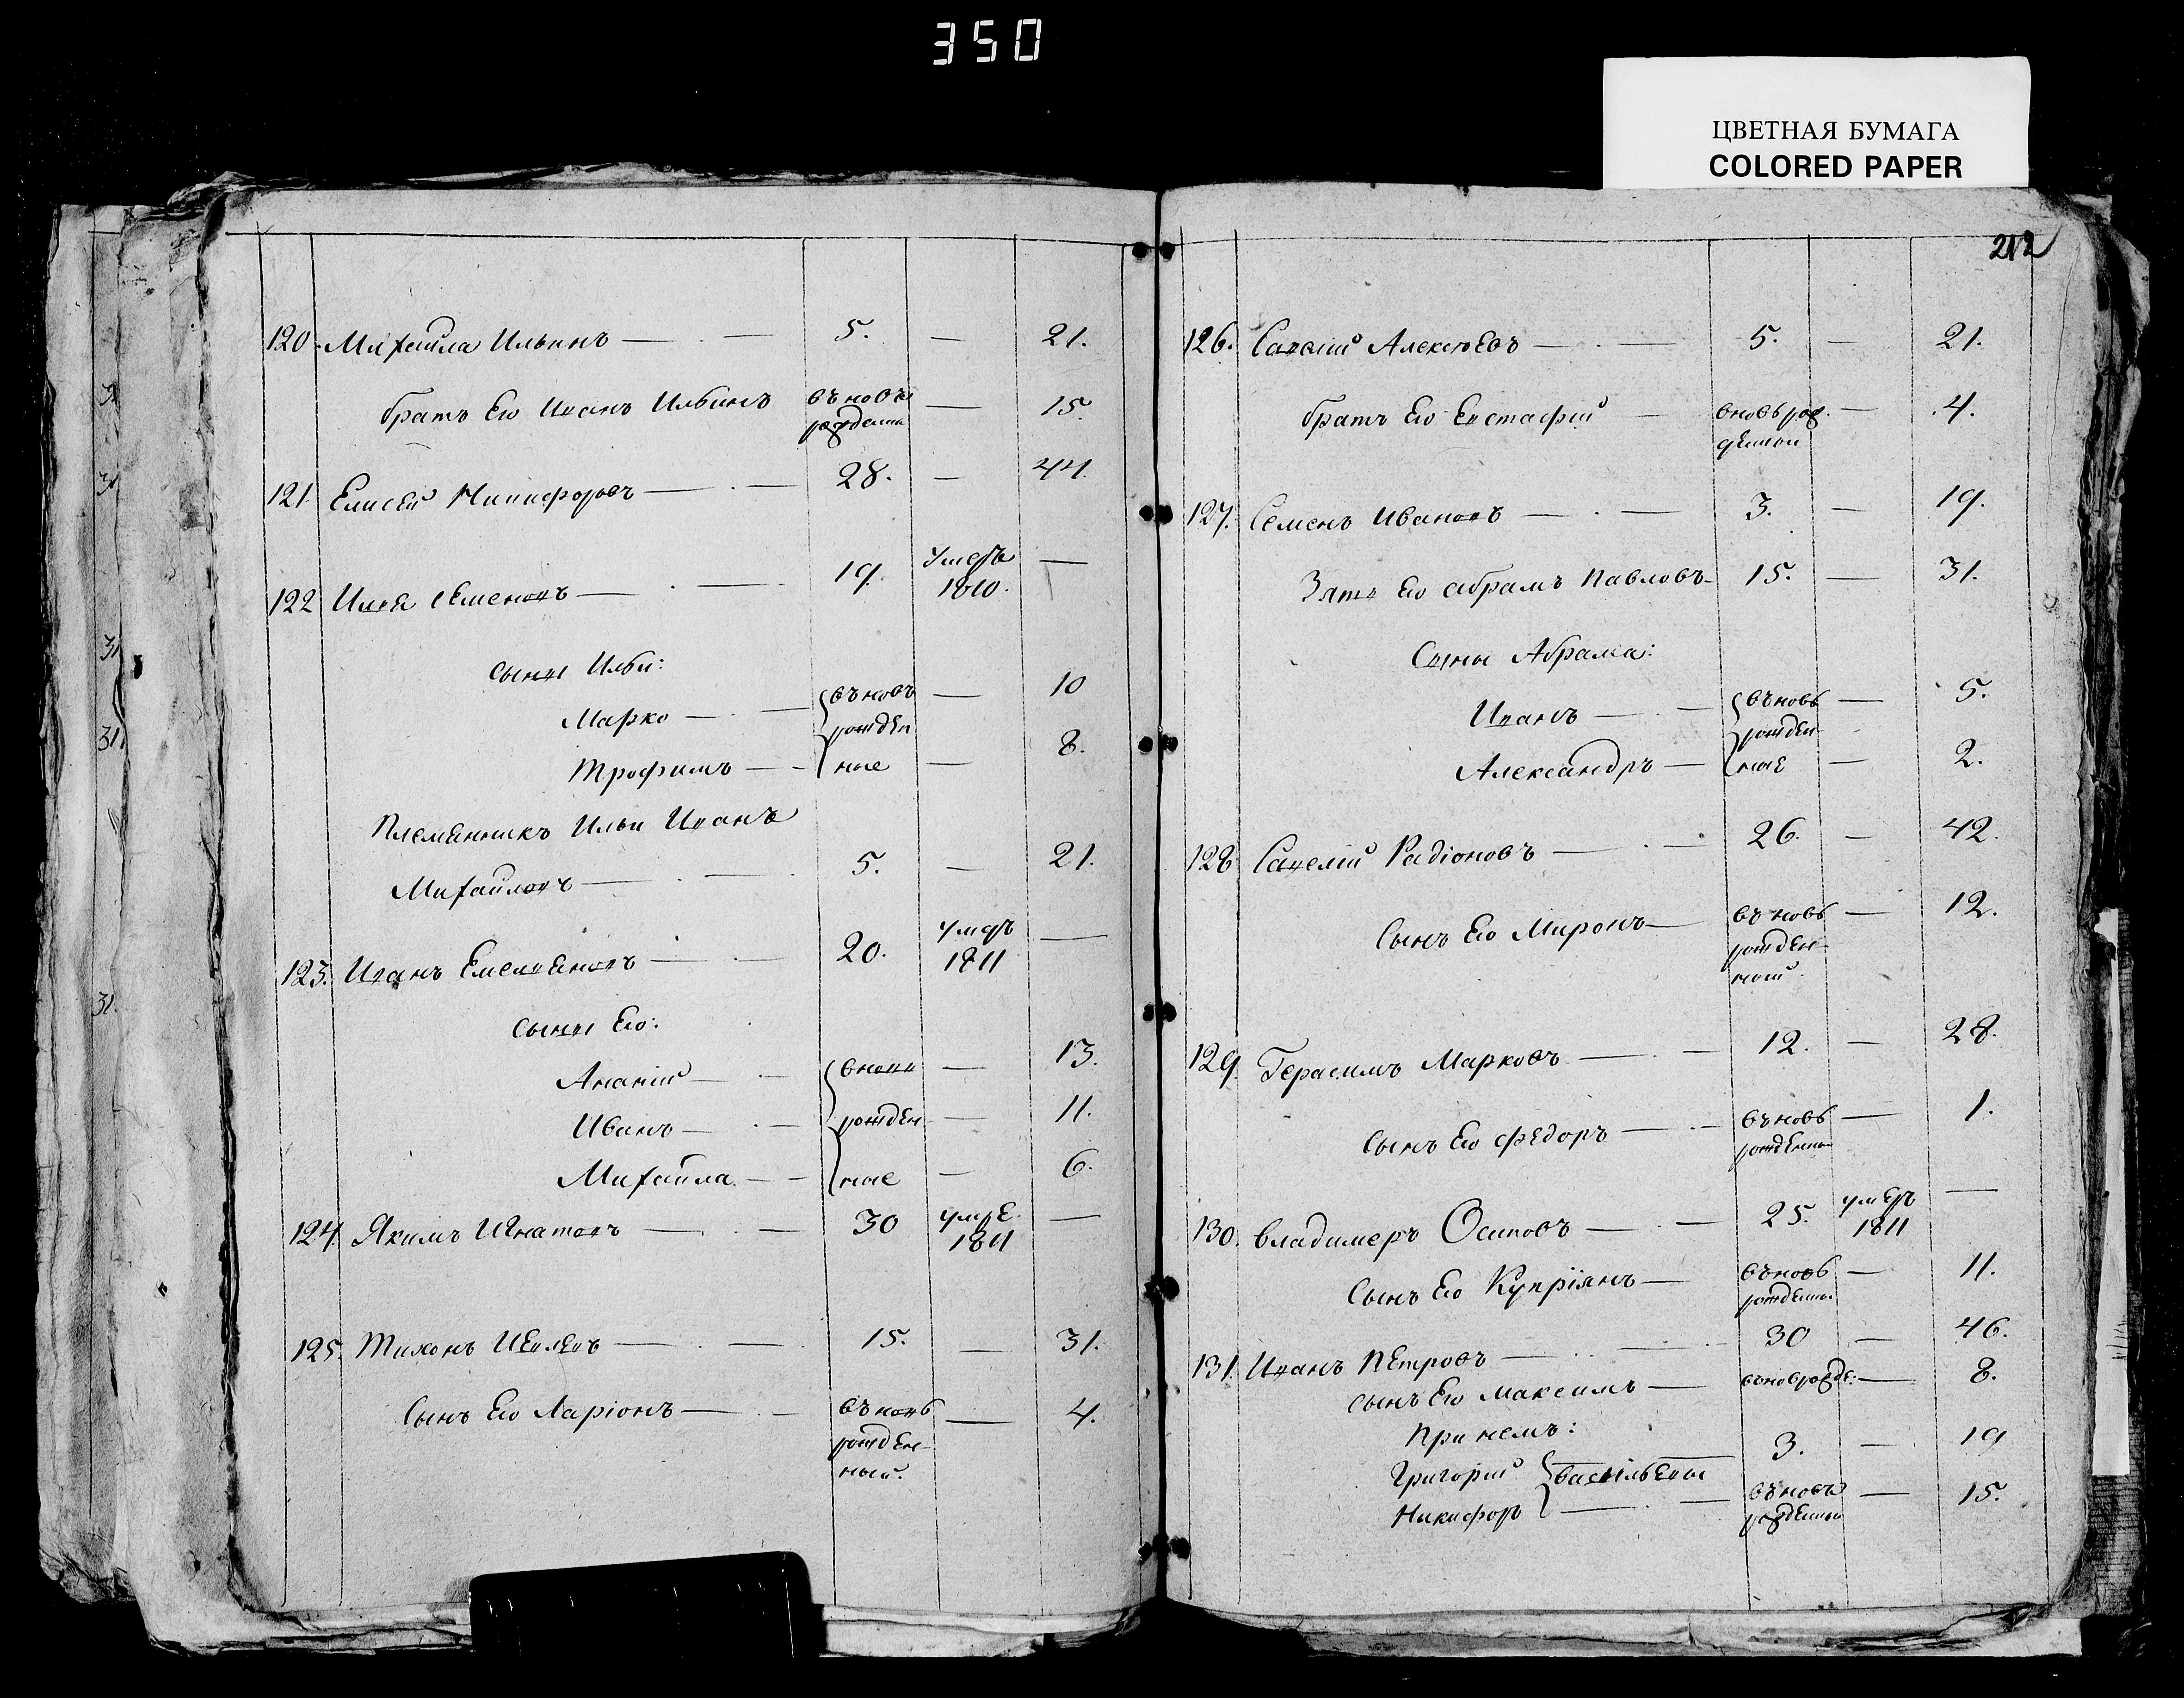 350
ЦВЕТНАЯ БУМАГА
COLORED PAPER
120. Михайла Ильинъ — 5. — 21.
братъ Ево Иванъ Ильинъ въновь — 15.
рожденны
121. Елисей Никифоровъ — 28. — 44.
122 Илья Семеновъ — 19. умеръ —
1810.
сыны Ильи:
Марко — въновь — 10
рожден
Трофимъ — ные — 8.
Племянникъ Ильи Иванъ
Михайловъ — 5. — 21.
123. Иванъ Емельяновъ — 20. умеръ —
1811
сыны Ево:
Ананий — вновь — 13.
Иванъ — рожден — 11.
Михайла — ные — 6.
124. Якимъ Игнатовъ — 30 умре —
1811
125. Тихонъ Иевлевъ — 15. — 31.
сынъ Ево Ларіонъ — въновь — 4.
рожден-
ный.
31
31
31
31.
31.
212
126. Савелий Алексѣевъ — 5. — 21.
братъ Ево Евстафий — вновь рож — 4.
денной
127. Семенъ Ивановъ — 3. — 19.
Зять Ево Абрамъ Павловъ — 15. — 31.
Сыны Абрама:
Иванъ — въновь — 5.
рожден
Александръ — ные — 2.
128 Савелий Радіоновъ — 26. — 42.
Сынъ Ево Миронъ — въновь — 12.
рожден-
ной
129. Герасимъ Марковъ — 12. — 28.
Сынъ Ево Федоръ — въновь — 1.
рожденны
130. Владимеръ Осиповъ — 25. умеръ —
1811
Сынъ Ево Купріянъ — въновь — 11.
рожденны
131. Иванъ Петровъ — 30 — 46.
сынъ Ево Максимъ — въновь рожде: — 8.
При немъ:
Григорий Васильевы 3. — 19
Никифоръ — въновь — 15.
рожденный